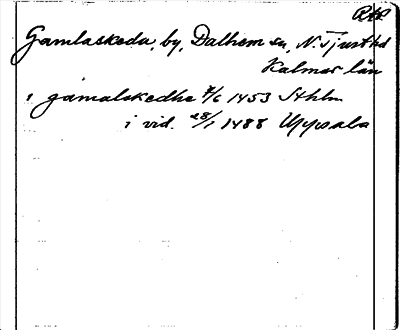 RAP
Gamlaskeda, by, Dalhem sn, N. Tjust hd
Kalmar län
i gamalskedhe 7/6 1453 Sthlm
i vid. 28/1 1488 Uppsala